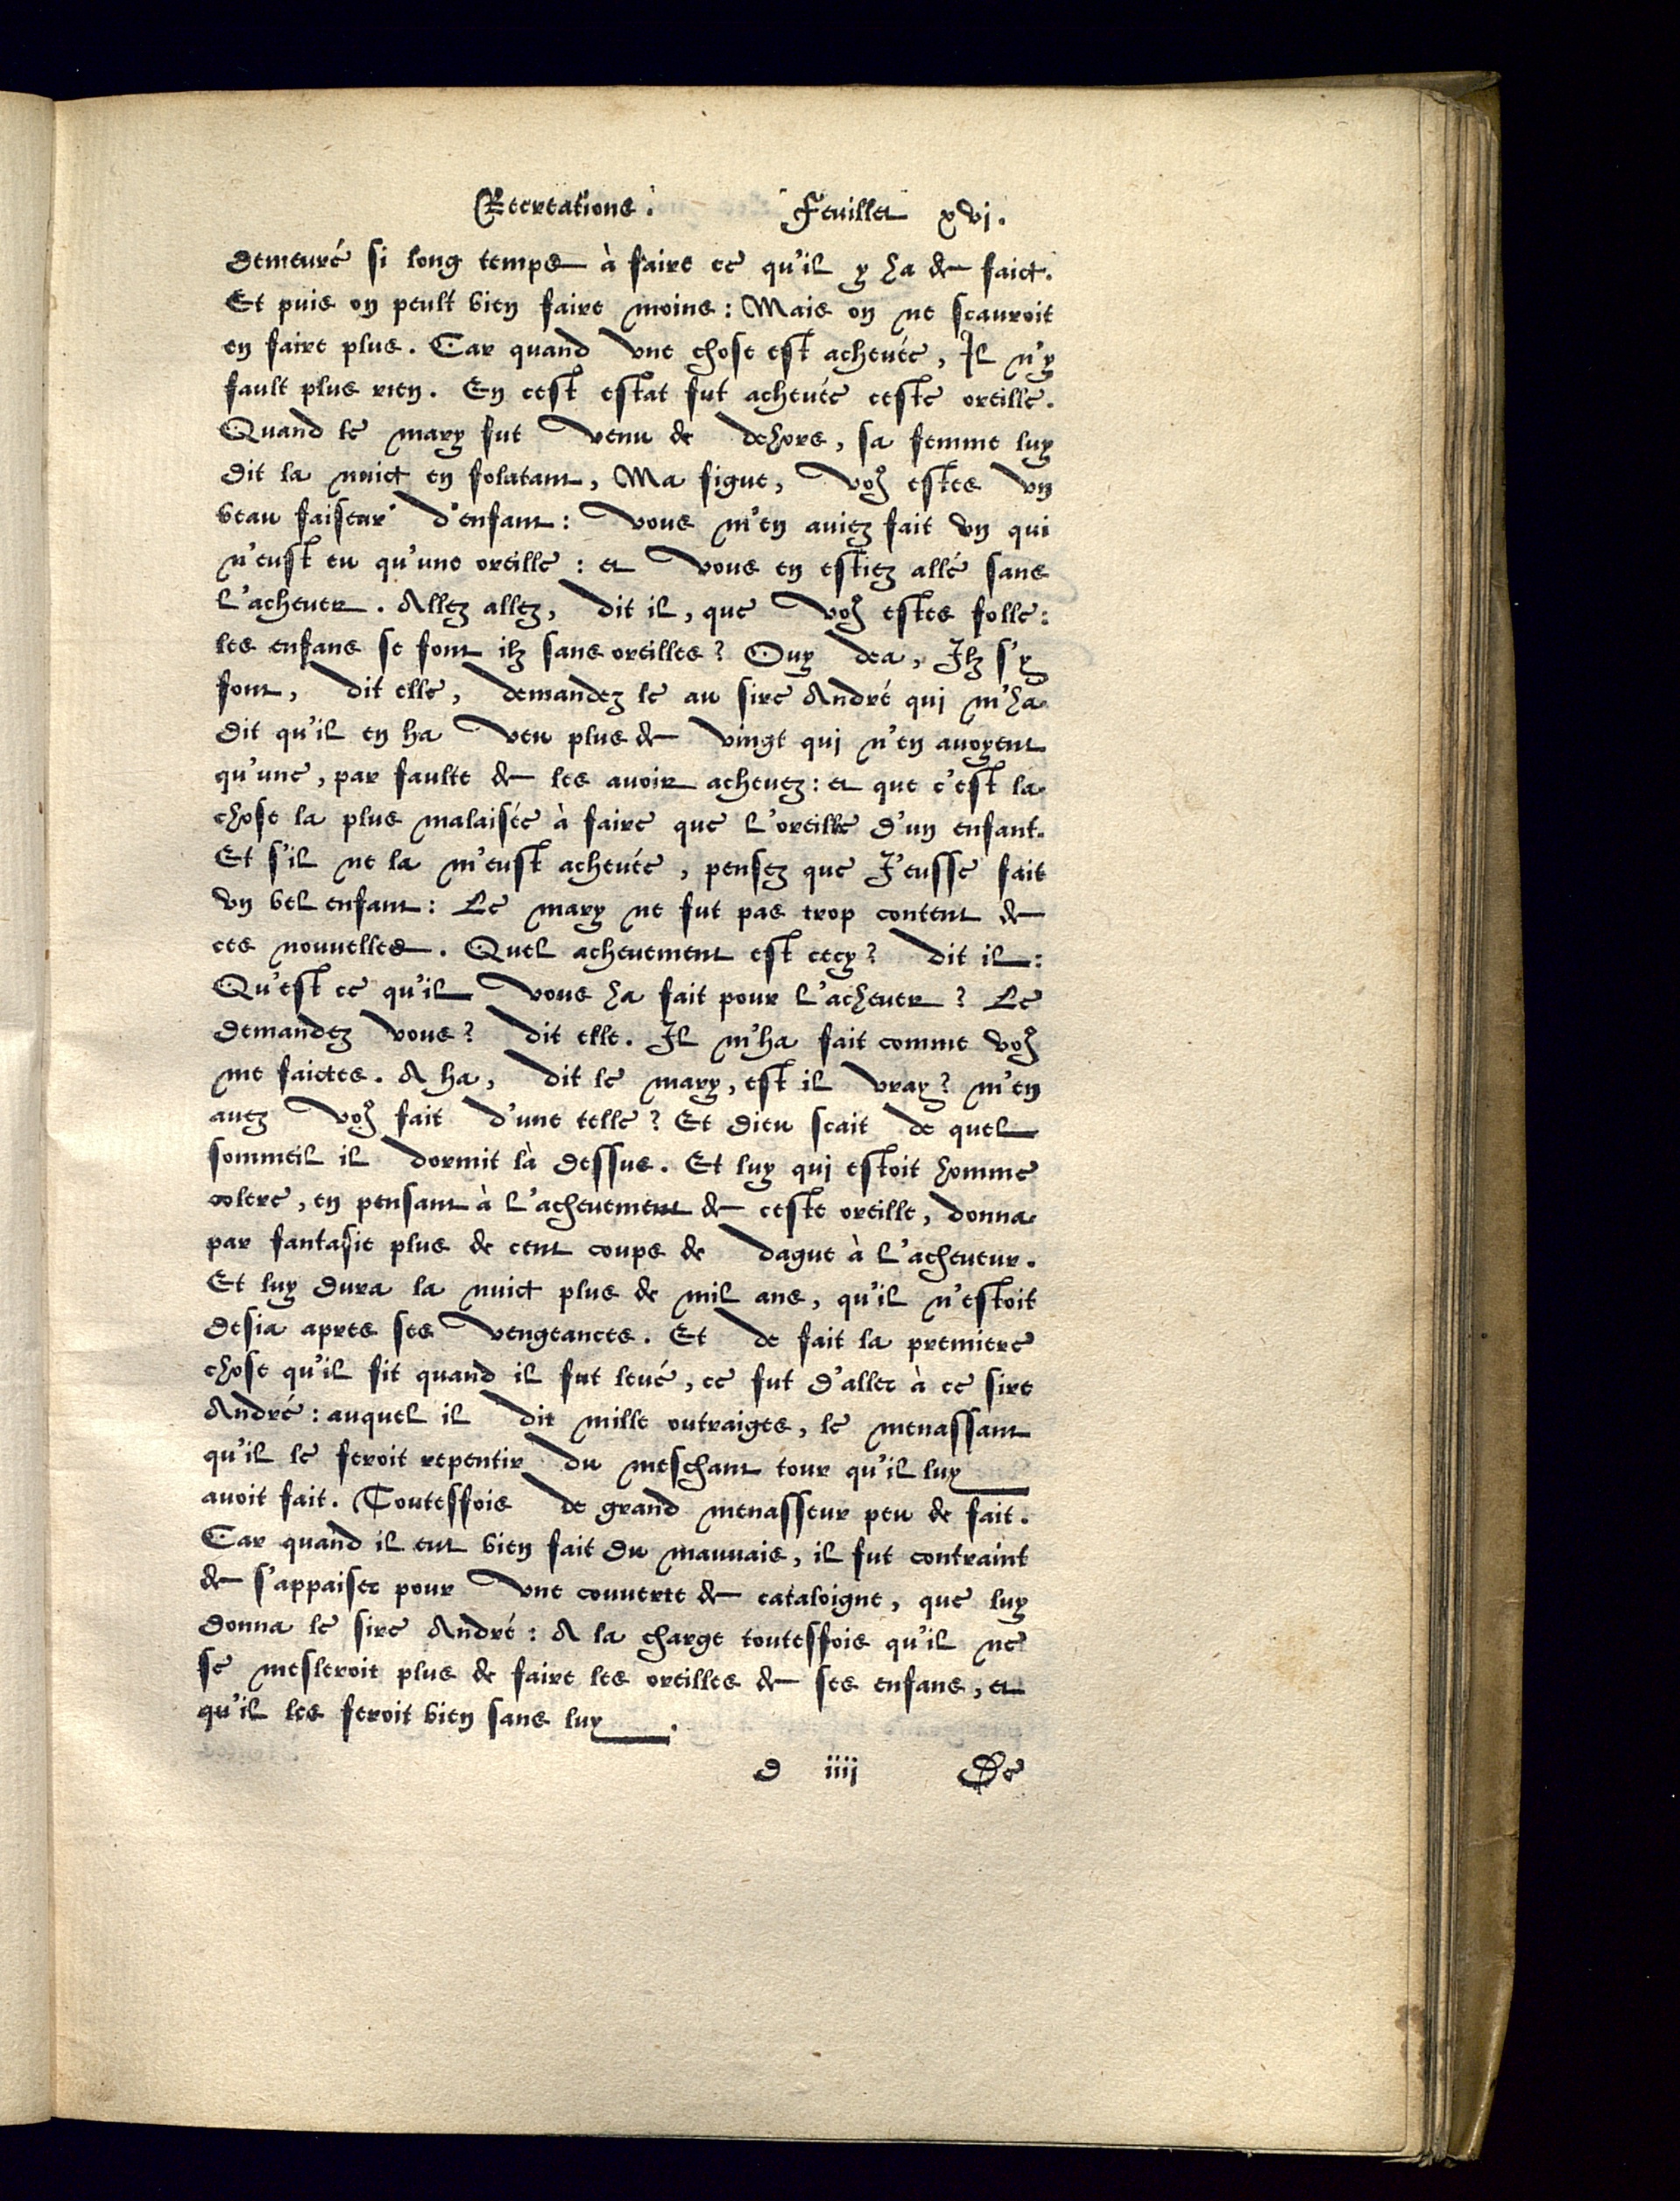 Recreations. Feuillet xvj.
demeuré si long temps à faire ce qu'il y ha de faict.
Et puis on peult bien faire moins : Mais on ne scauroit
en faire plus. Car quand vne chose est acheuée, Il n'y
fault plus rien. En cest estat fut acheuée ceste oreille.
Quand le mary fut venu de dehors, sa femme luy
dit la nuict en folatant, Ma figue, voꝰ estes vn
beau faiseur d'enfant : vous m'en auiez fait vn qui
n'eust eu qu'une oreille : et vous en estiez allé sans
l'acheuer. Allez allez, dit il, que voꝰ estes folle :
les enfans se font ilz sans oreilles ? Ouy dea, Ilz s'y
font, dit elle, demandez le au sire André qui m'ha
dit qu'il en ha veu plus de vingt qui n'en auoyent
qu'une, par faulte de les auoir acheuez : et que c'est la
chose la plus malaisée à faire que l'oreille d'un enfant.
Et s'il ne la m'eust acheuée, pensez que J'eusse fait
vn bel enfant : Le mary ne fut pas trop content de
ces nouuelles. Quel acheuement est cecy ? dit il :
Qu'est ce qu'il vous ha fait pour l'acheuer ? Le
demandez vous ? dit elle. Il m'ha fait comme voꝰ
me faictes. A ha, dit le mary, est il vray ? m'en
auez voꝰ fait d'une telle ? Et Dieu scait de quel
sommeil il dormit là dessus. Et luy qui estoit homme
colere, en pensant à l'acheuement de ceste oreille, donna
par fantasie plus de cent coups de dague à l'acheueur.
Et luy dura la nuict plus de mil ans, qu'il n'estoit
desia apres ses vengeances. Et de fait la premiere
chose qu'il fit quand il fut leué, ce fut d'aller à ce sire
André : auquel il dit mille outraiges, le menassant
qu'il le feroit repentir du meschant tour qu'il luy
auoit fait. Toutesfois de grand menasseur peu de fait.
Car quand il eut bien fait du mauuais, il fut contraint
de s'appaiser pour vne couuerte de cataloigne, que luy
donna le sire André : A la charge toutesfois qu'il ne
se mesleroit plus de faire les oreilles de ses enfans, et
qu'il les feroit bien sans luy.
d iiij De